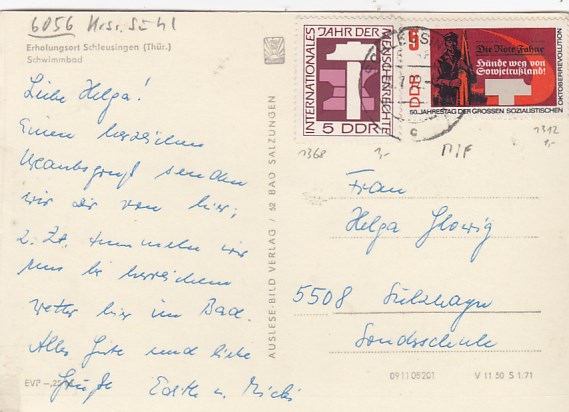 6056 Krs. Suhl
Erholungsort Schleusingen (Thür.)
Schwimmbad
Liebe Helga!
Einen herzlichen
Urlaubsgruß senden
wir dir von hier;
z. Zt. tummeln wir
uns bei herrlichem
Wetter hier im Bad.
Alles Gute und liebe
Grüße Edith u. Micki
EVP -,25
AUSLESE-BILD VERLAG / 62 BAD SALZUNGEN
INTERNATIONALES JAHR DER MENSCHENRECHTE
5 DDR
5
DDR
Die Rote Fahne
Hände weg von
Sowjetrußland!
50. JAHRESTAG DER GROSSEN SOZIALISTISCHEN OKTOBERREVOLUTION
c
1368
1,-
MIF
1312
1,-
Frau
Helga Glowig
5508 Sülzhayn
Sonderschule
09 11 08201
V 11 50 S 1/71